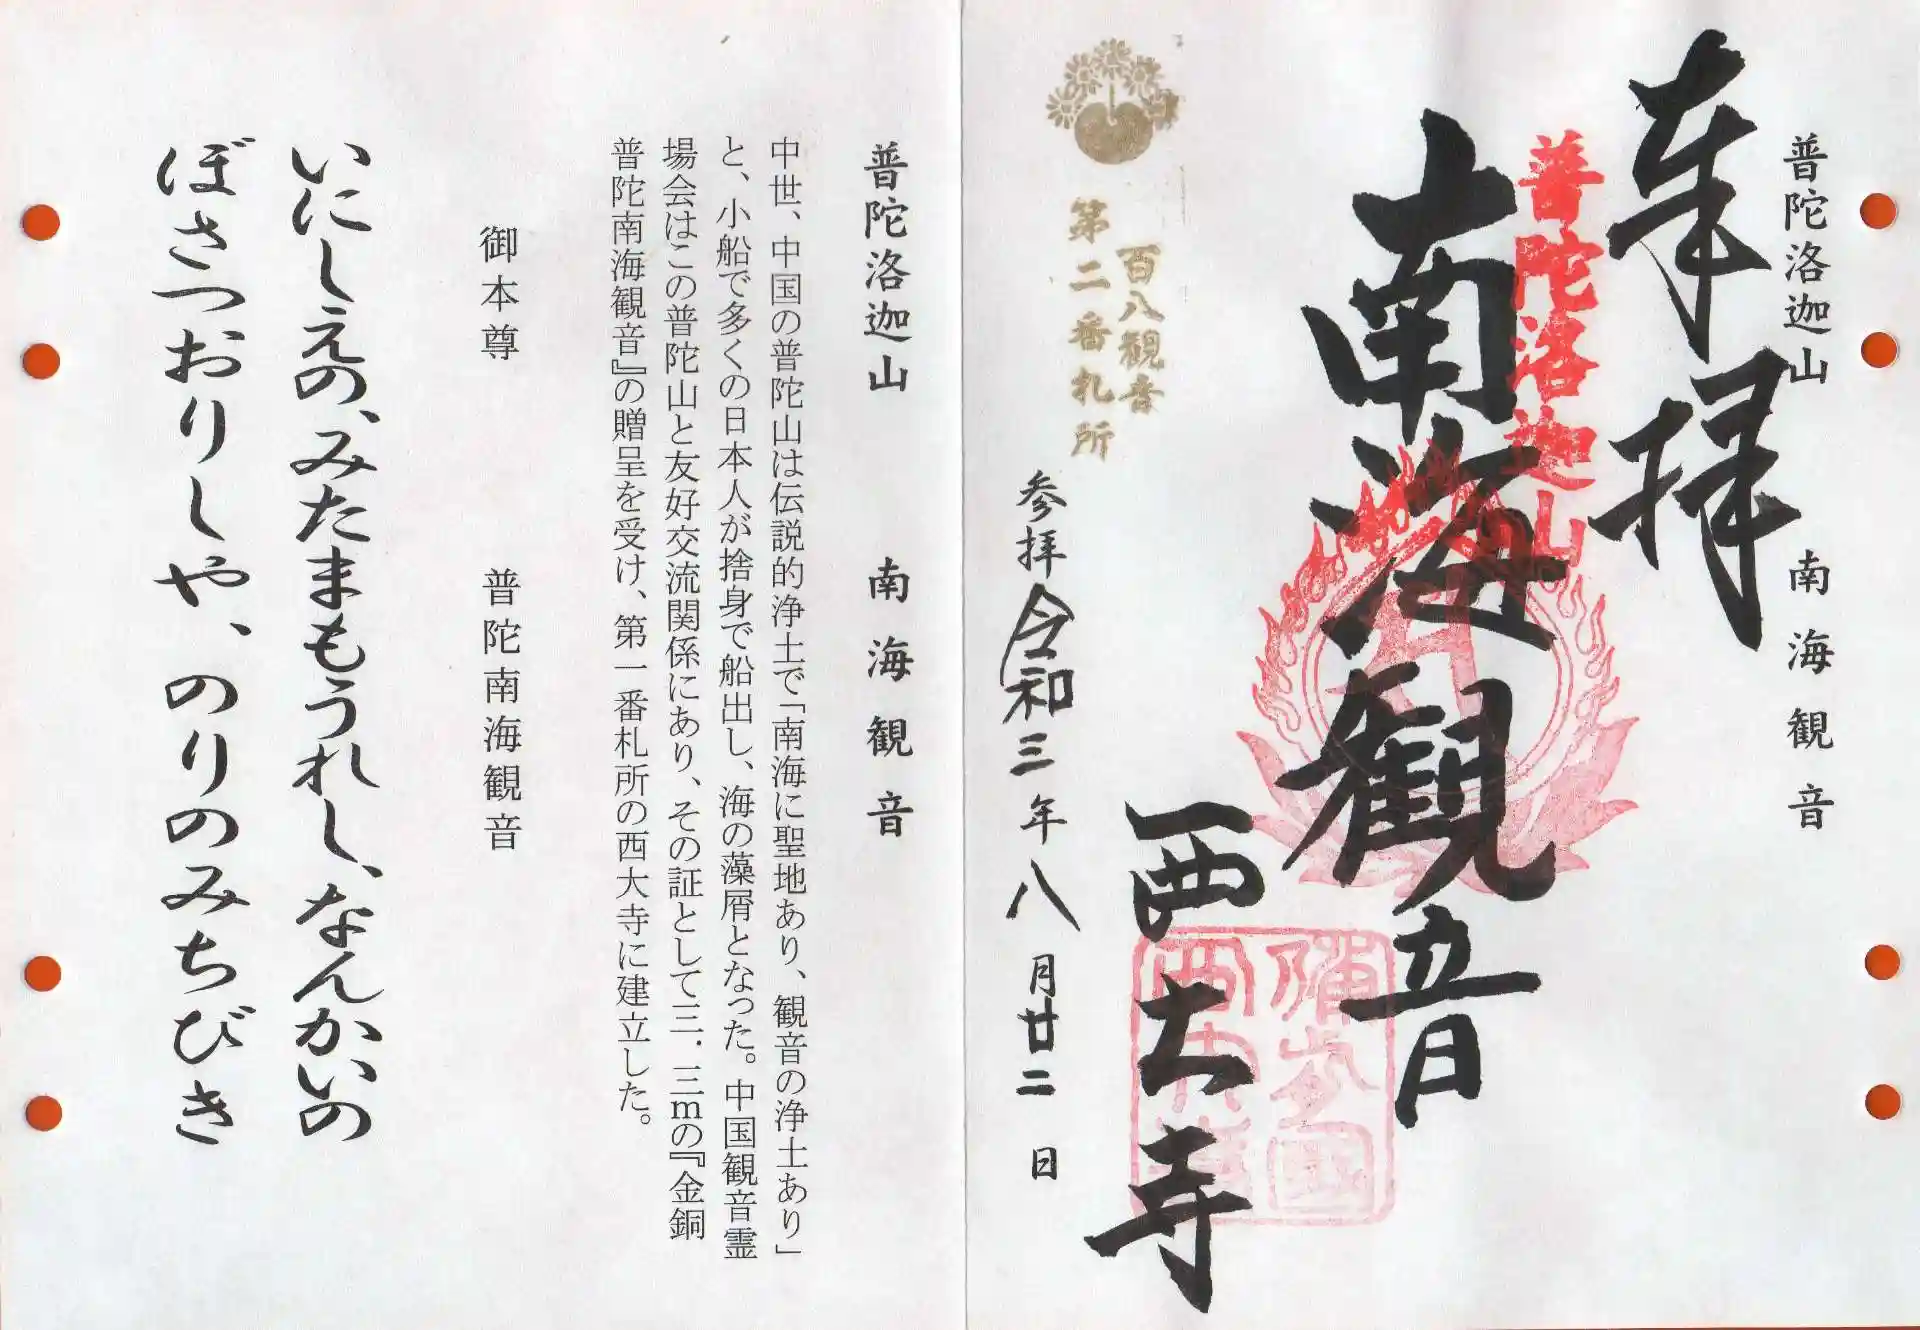 普陀洛迦山　南海観音
奉拝
普陀洛迦山
南海観音
西大寺
備前国
西大寺
百八観音
第二番札所
参拝令和三年八月廿二日
普陀洛迦山　南海観音
中世、中国の普陀山は伝説的浄土で「南海に聖地あり、観音の浄土あり」
と、小船で多くの日本人が捨身で船出し、海の藻屑となった。中国観音霊
場会はこの普陀山と友好交流関係にあり、その証として三．三mの『金銅
普陀南海観音』の贈呈を受け、第一番札所の西大寺に建立した。
御本尊　普陀南海観音
いにしえの、みたまもうれし、なんかいの
ぼさつおりしや、のりのみちびき